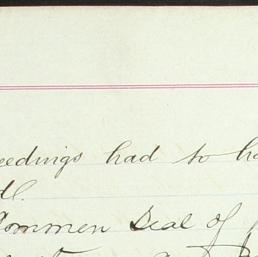 eedings had to ha
dl.
Common Seal of